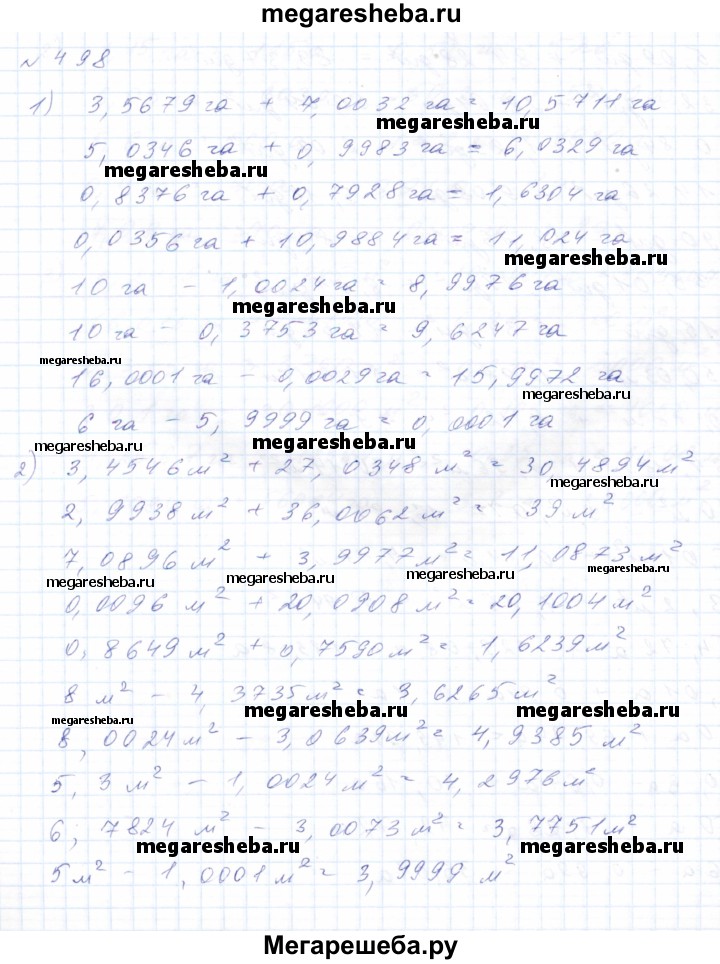 megaresheba.ru
№ 498
1) 3,5679 га + 7,0032 га = 10,5711 га
megaresheba.ru
5,0346 га + 0,9983 га = 6,0329 га
megaresheba.ru
0,8376 га + 0,7928 га = 1,6304 га
0,0356 га + 10,9884 га = 11,024 га
megaresheba.ru
10 га - 1,0024 га = 8,9976 га
megaresheba.ru
10 га - 0,3753 га = 9,6247 га
megaresheba.ru
16,0001 га - 0,0029 га = 15,9972 га
megaresheba.ru
6 га - 5,9999 га = 0,0001 га
megaresheba.ru megaresheba.ru
2) 3,4546 м² + 27,0348 м² = 30,4894 м²
megaresheba.ru
2,9938 м² + 36,0062 м² = 39 м²
7,0896 м² + 3,9977 м² = 11,0873 м²
megaresheba.ru megaresheba.ru megaresheba.ru megaresheba.ru
0,0096 м² + 20,0908 м² = 20,1004 м²
0,8649 м² + 0,7590 м² = 1,6239 м²
8 м² - 4,3735 м² = 3,6265 м²
megaresheba.ru megaresheba.ru megaresheba.ru
8,0024 м² - 3,0639 м² = 4,9385 м²
5,3 м² - 1,0024 м² = 4,2976 м²
6,7824 м² - 3,0073 м² = 3,7751 м²
megaresheba.ru megaresheba.ru
5 м² - 1,0001 м² = 3,9999 м²
Мегарешеба.ру